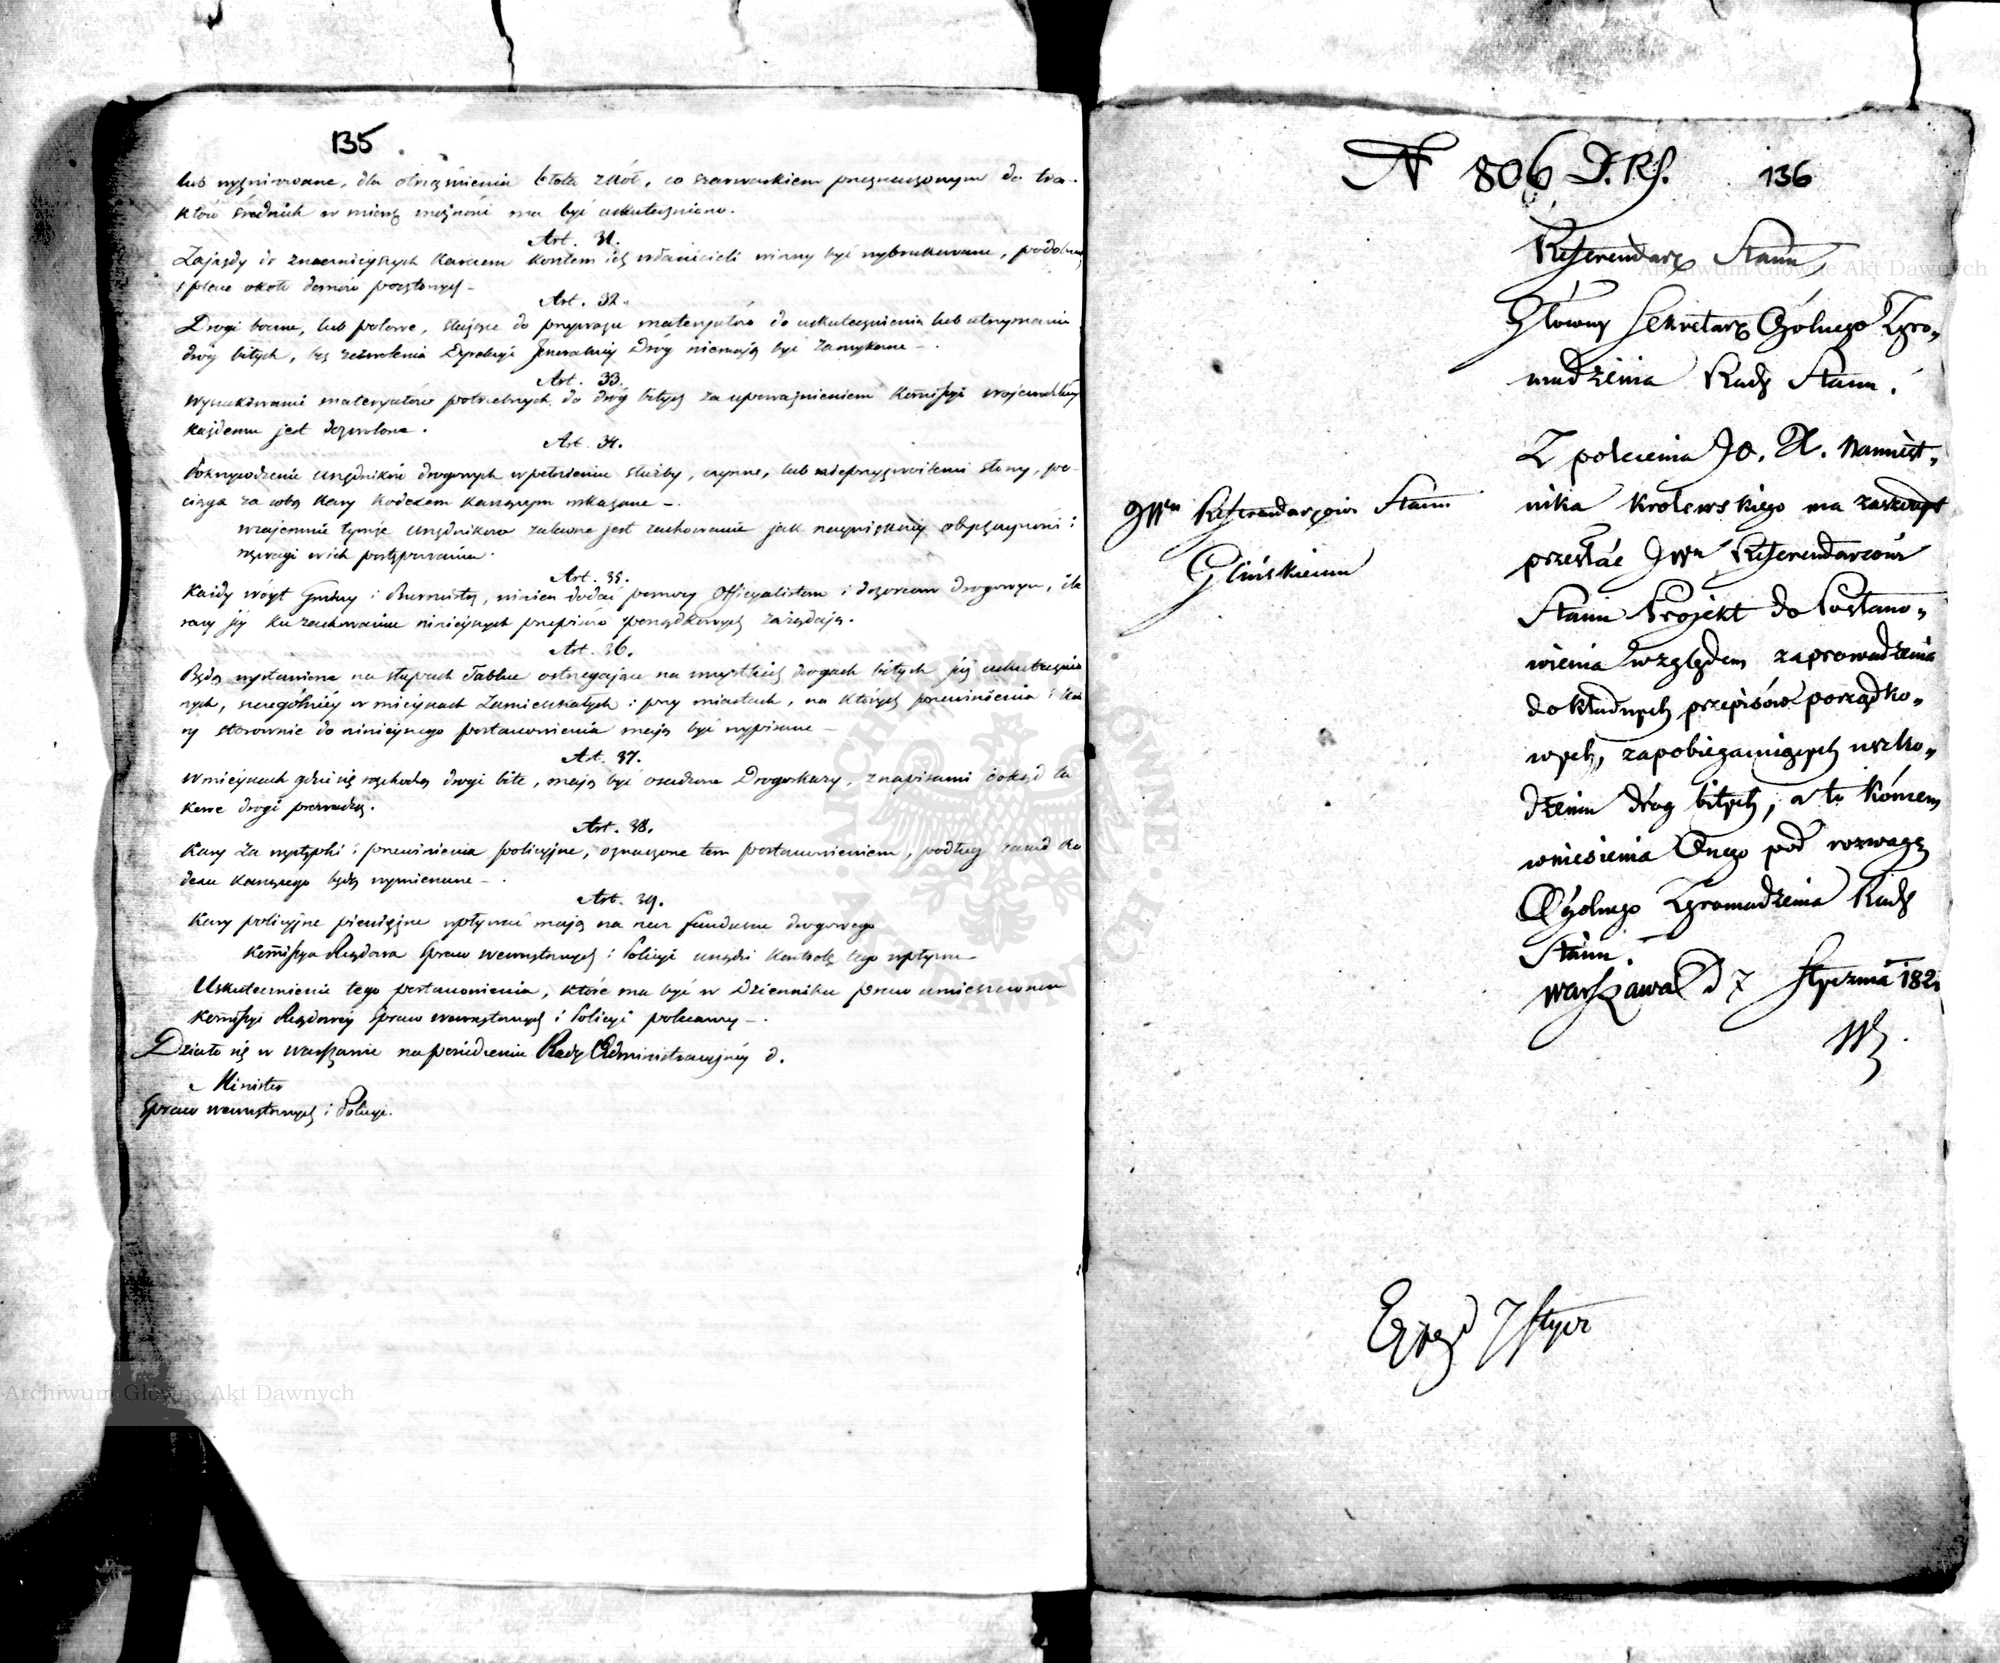 135
lub wyżwirowane, dla otrzymienia błota z kół, co szarwarkiem przeznaczonym do tra-
któw średnich w miarę możności ma być uskutecznione.
Art. 31.
Zajazdy do znaczniejszych karczem kosztem ich właścicieli winny być wybrukowane, podobnież
i place około domów pocztowych –
Art. 32.
Drogi boczne, lub polowe, służące do przywozu materyałów do uskutecznienia lub utrzymania
dróg bitych, bez zezwolenia Dyrekcyi Jeneralney Dróg niemają być zamykane –.
Art. 33.
Wyszukiwanie materyałów potrzebnych do dróg bitych za upoważnieniem Kommissyi Wojewódzkiey
każdemu jest dozwolone.
Art. 34.
Pokrzywdzenie urzędników drogowych w pełnieniu służby, czynne, lub nieprzyzwoitemi słowy, po-
ciąga za sobą kary kodexem karzącym wskazane –.
Wzajemnie tymże urzędnikom zalecone jest zachowanie jak naywiększey obyczayności i
rozwagi w ich postępowaniu.
Art. 35.
Każdy wóyt Gminy i Burmistrz, winien dodać pomocy Officyalistom i dozorcom drogowym, ile
razy jey ku zachowaniu ninieyszych przepisów porządkowych zażądają.
Art. 36.
Będą wystawione na słupach Tablice ostrzegające na wszystkich drogach bitych już uskutecznio
nych, szczególniey w mieyscach zamieszkałych i przy miastach, na których przewinienia i ka
ry stosownie do ninieyszego postanowienia mają być wypisane –
Art. 37.
W mieyscach gdzie się rozchodzą drogi bite, mają być osadzone Drogoskazy, z napisami dokąd ta
kowe drogi prowadzą.
Art. 38.
Kary za występki i przewinienia policyjne, oznaczone tem postanowieniem, podług zasad Ko
dexu Karzącego będą wymierzane –.
Art. 39.
Kary policyjne pieniężne wpływać mają na rzecz funduszu drogowego
Kommissya Rządowa Spraw wewnętrznych i Policyi urządzi kontrolę tego wpływu
Uskutecznienie tego postanowienia, które ma być w Dzienniku praw umieszczone
Kommissyi Rządowey Spraw wewnętrznych i Policyi polecamy –.
Działo się w Warszawie na posiedzeniu Rady Administracyjney d.
Minister
Spraw wewnętrznych i Policyi.
N 806 D. Rs.
136
Referendarz Stanu
Główny Sekretarz Ogólnego Zgro„
madzenia Rady Stanu.
JWu Referendarzowi Stanu
Glińskiemu
Z polecenia JO. X. Namiest„
nika Królewskiego ma zaszczyt
przesłać JWu Referendarzowi
Stanu Projekt do Postano„
wienia względem zaprowadzenia
dokładnych przepisów porządko„
wych, zapobiegaiących uszko„
dzeniu dróg bitych, a to końcem
wniesienia Onego pod rozwagę
Ogólnego Zgromadzenia Rady
Stanu.
Warszawa d 7 Stycznia 182
Exped 7 Stycz
Archiwum Główne Akt Dawnych
Archiwum Główne Akt Dawnych